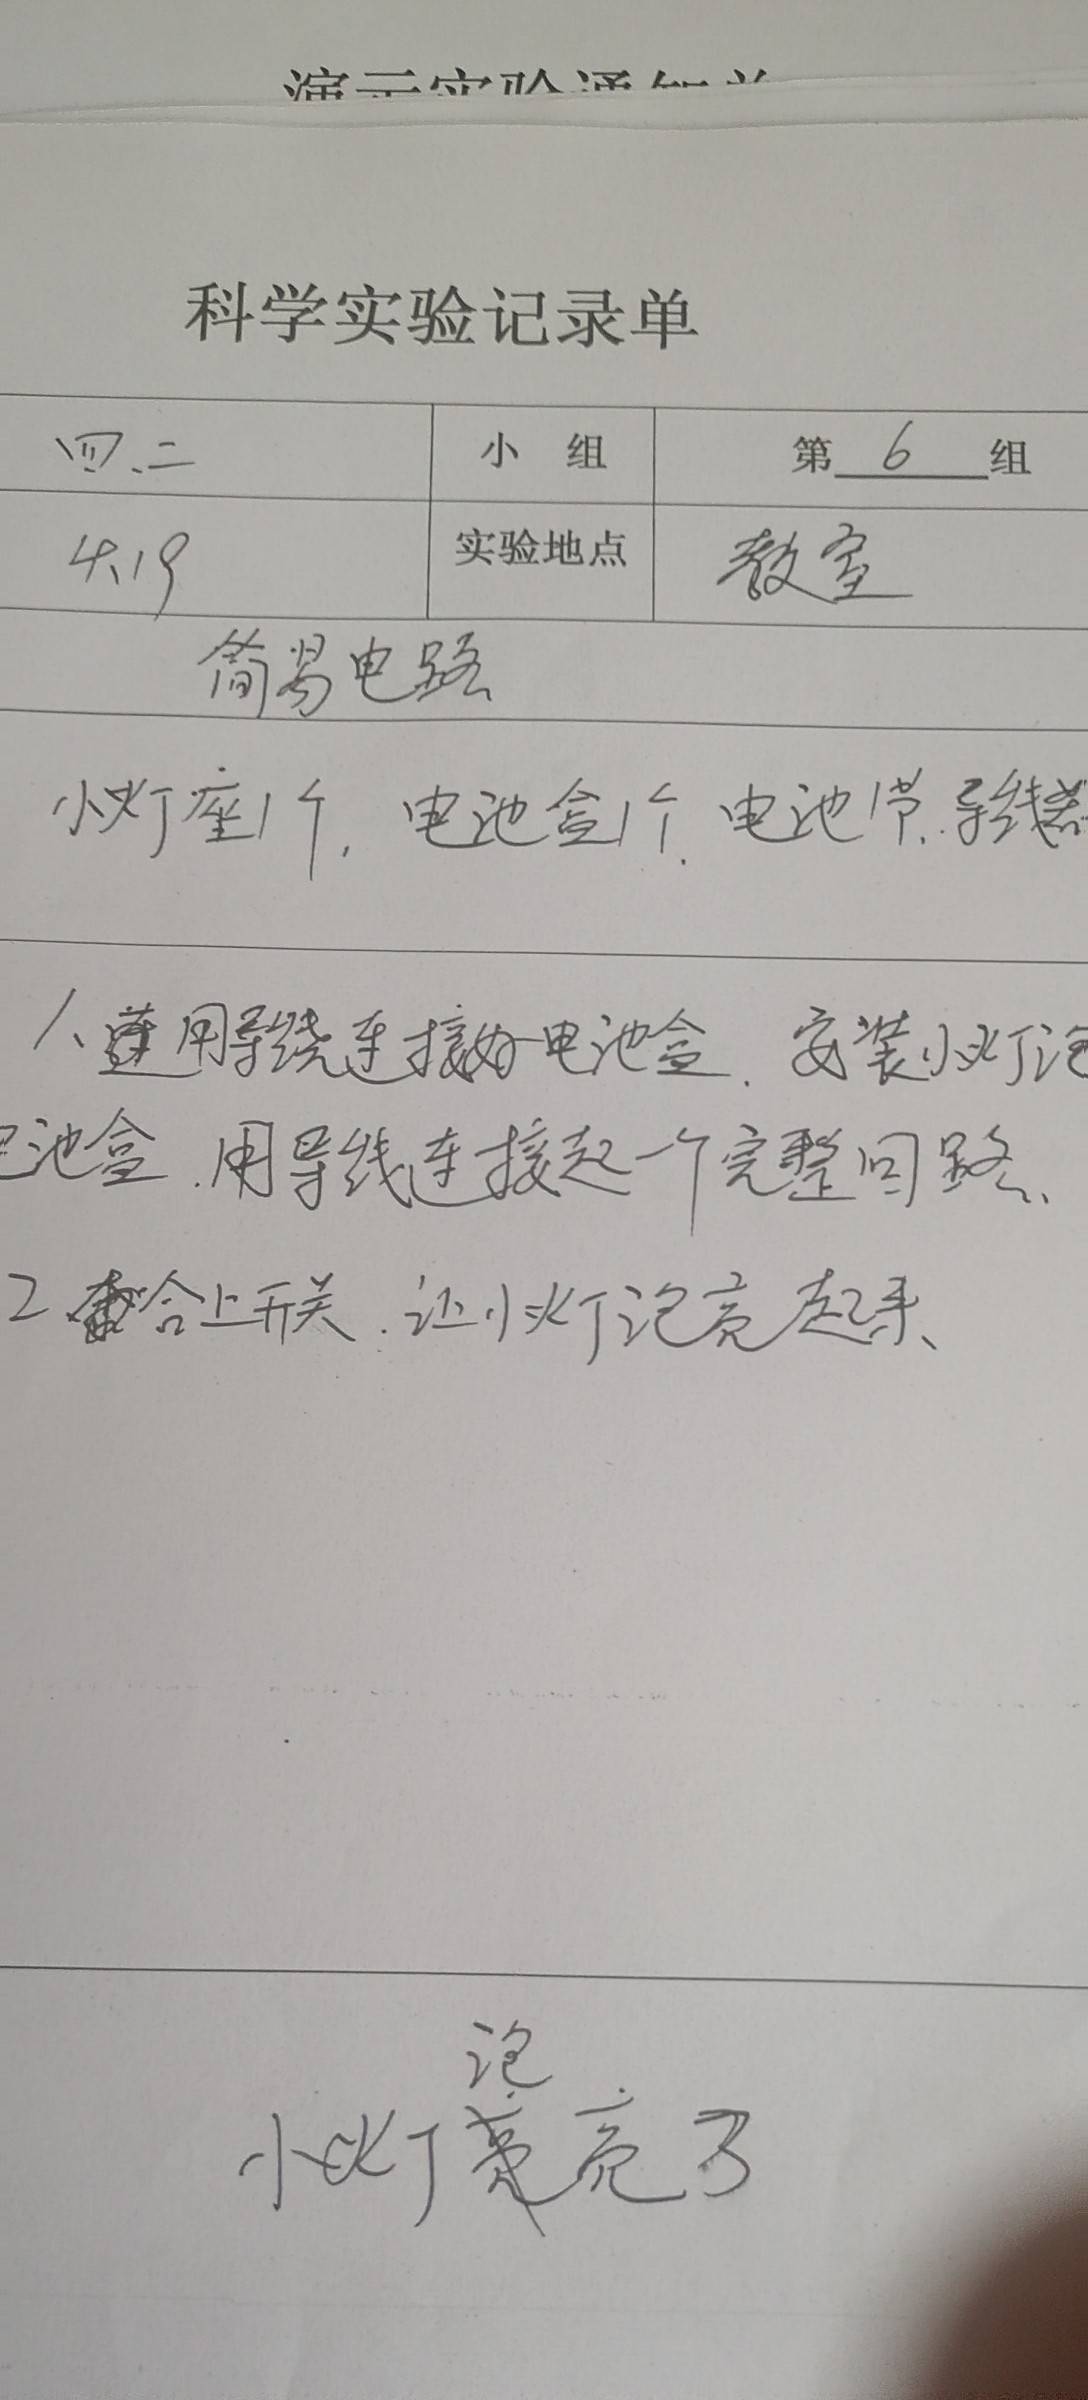 演示实验通知单
科学实验记录单
四.二 小 组 第 6 组
4.19 实验地点 教室
简易电路
小灯座1个, 电池盒1个. 电池1节. 导线若
1、用导线连接好电池盒. 安装小灯泡
电池盒.用导线连接起一个完整回路、
2 合上开关.让小灯泡亮起来、
泡
小灯亮了